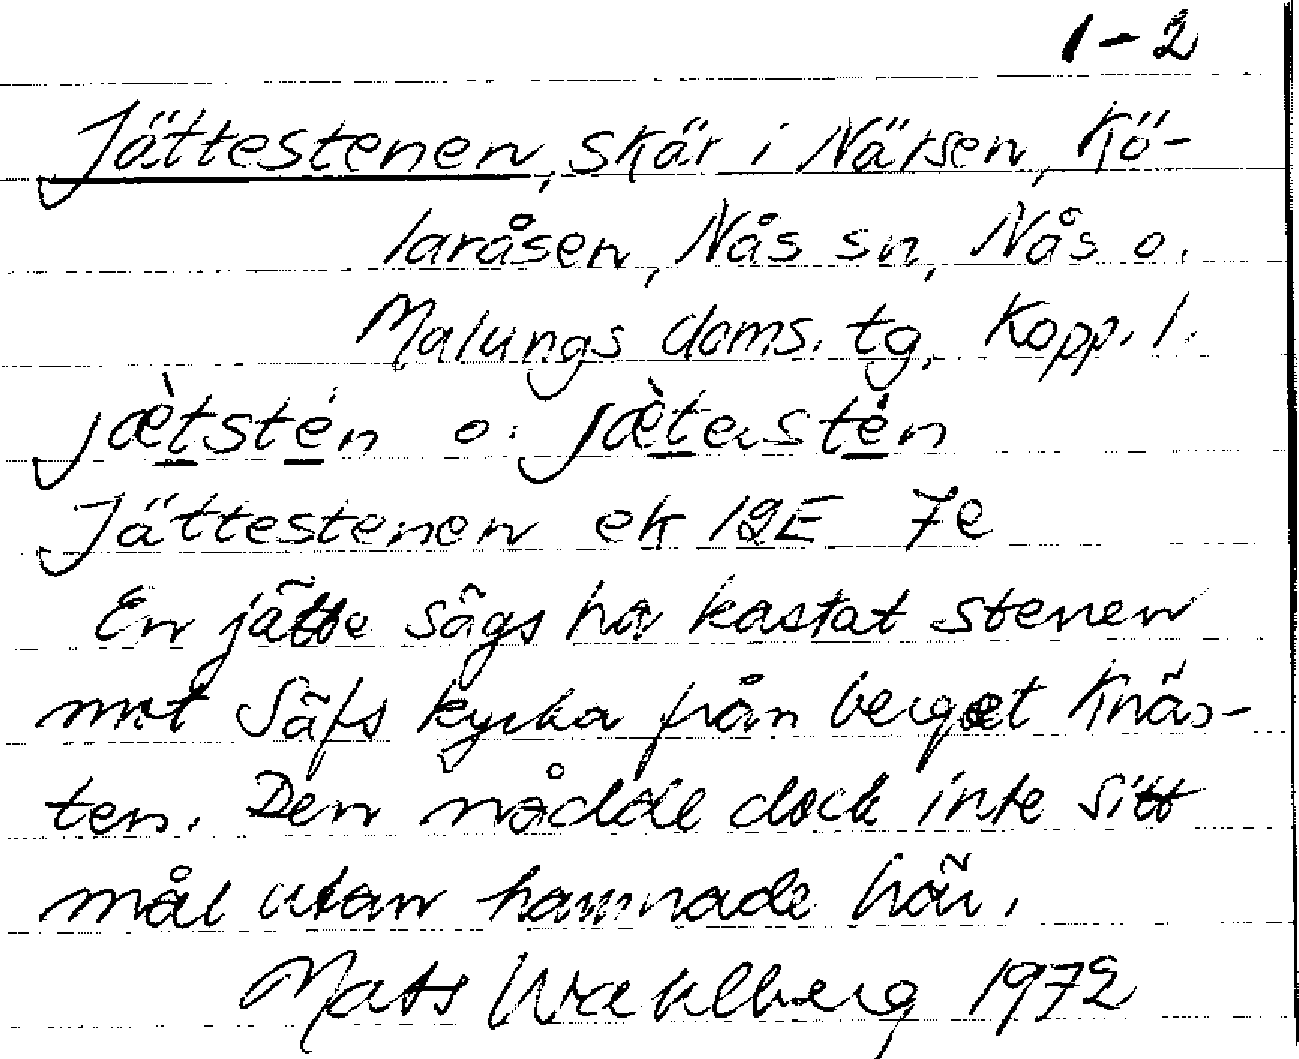 1-2
Jättestenen, skär i Närsen, Kö-
laråsen, Nås sn, Nås o.
Malungs doms. tg, Kopp. l.
jæ̀tstén o. jæ̀tastén
Jättestenen ek 12E 7e
En jätte sägs ha kastat stenen
mot Säfs kyrka från berget Knäs-
ten. Den nådde dock inte sitt
mål utan hamnade här.
Mats Wahlberg 1972